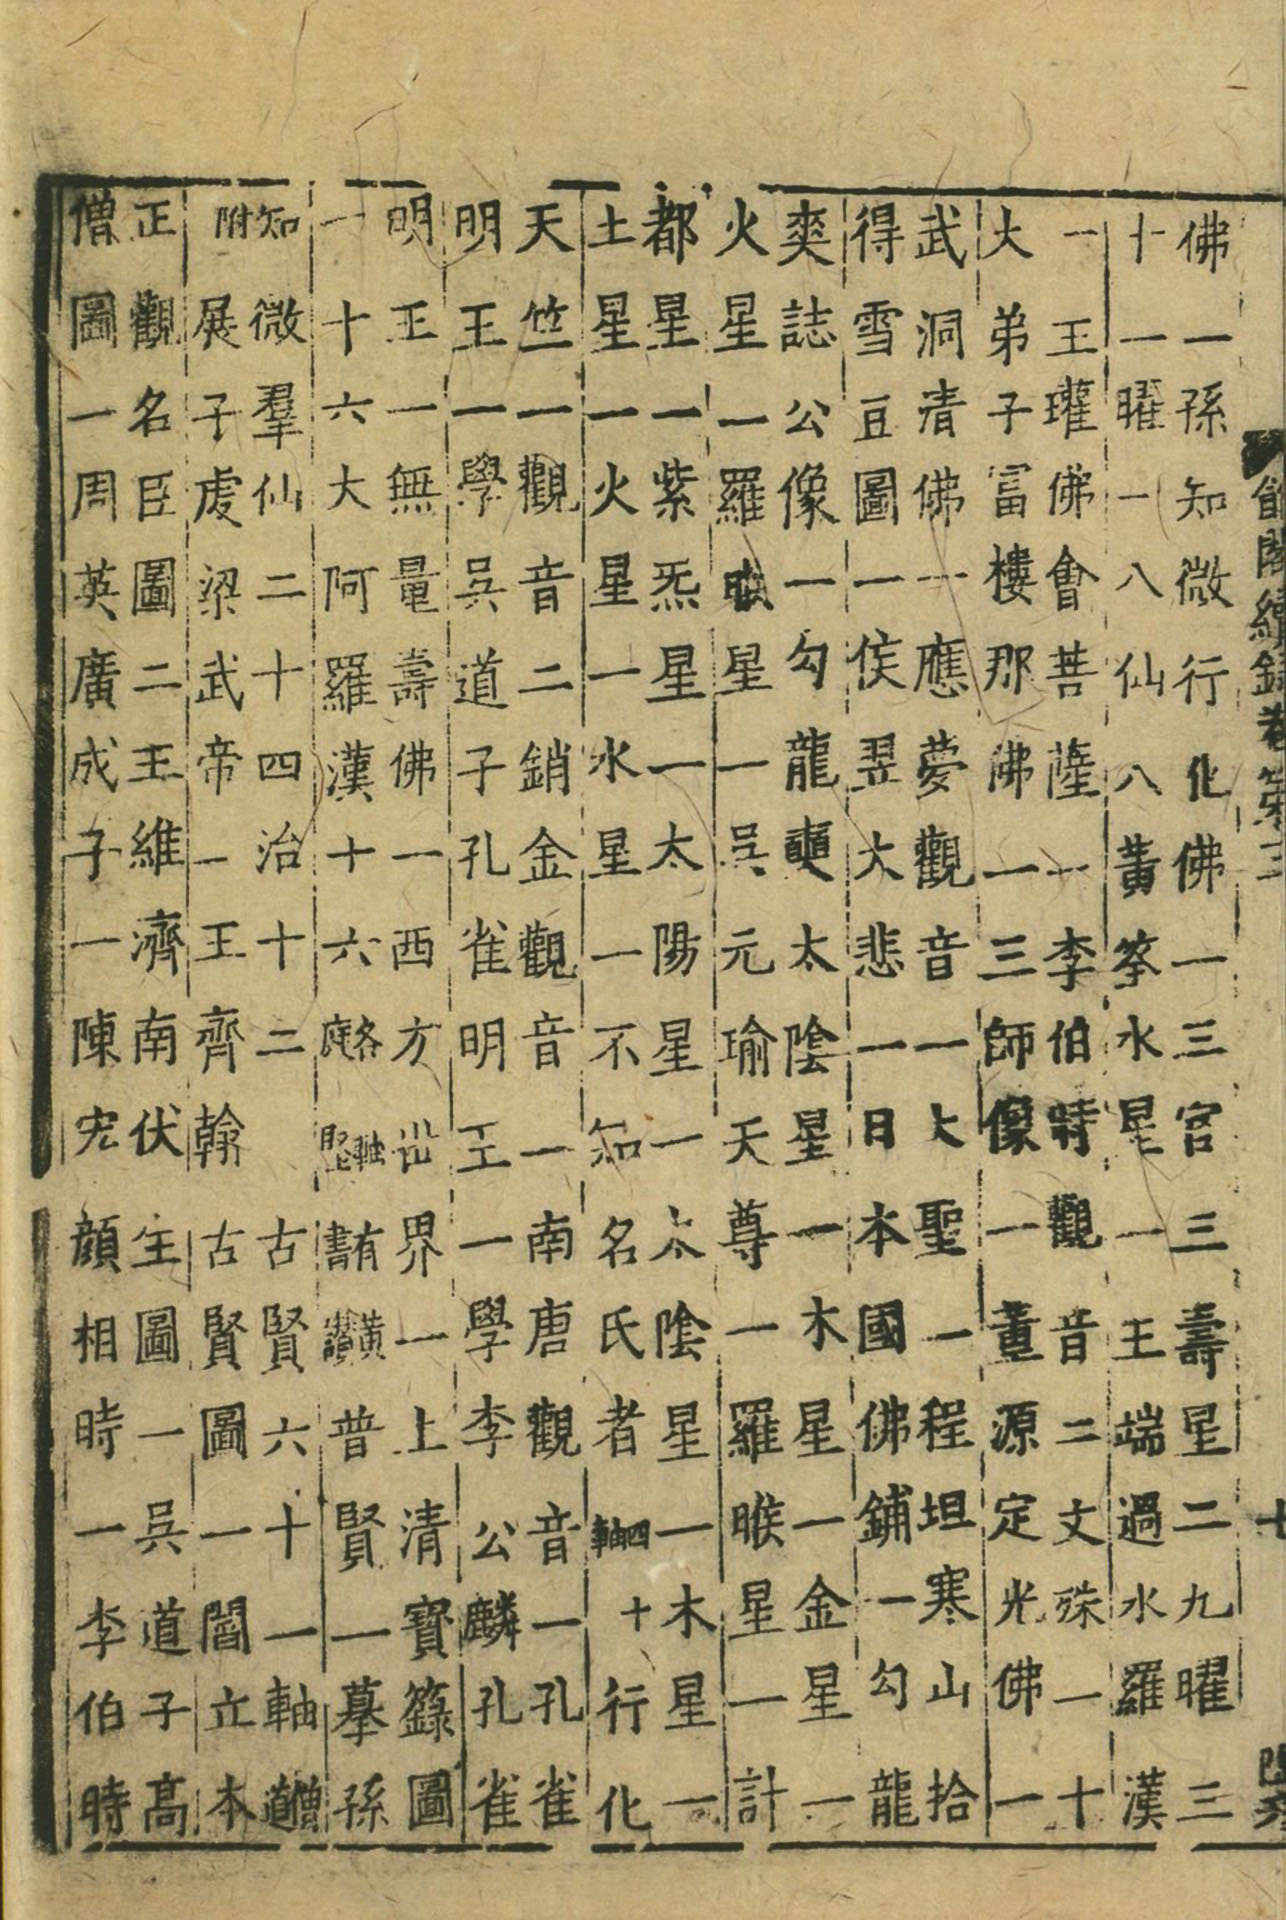 館閣續錄卷第三
佛一孫知微行化佛一三官三壽星二九曜三
十一曜一八仙八黃筌水星一王端過水羅漢
一王瓘佛會菩薩一李伯時觀音二文殊一十
大弟子富樓那佛一三師像一董源定光佛一
武洞清佛一應夢觀音一大聖一程坦寒山拾
得雪豆圖一侯翌大悲一日本國佛鋪一勾龍
爽誌公像一勾龍奭太陰星一木星一金星一
火星一羅睺星一吳元瑜天尊一羅睺星一計
都星一紫炁星一太陽星一太陰星一木星一
土星一火星一水星一不知名氏者四軸十行化
天竺一觀音二銷金觀音一南唐觀音一孔雀
明王一學吳道子孔雀明王一學李公麟孔雀
明王一無量壽佛一西方世界一上清寶籙圖
一十六大阿羅漢十六各軸有黃庭堅書讚普賢一摹孫
知微羣仙二十四治十二 古賢六十一軸僧道
附展子虔梁武帝一王齊翰古賢圖一閻立本
正觀名臣圖二王維濟南伏生圖一吳道子高
僧圖一周英廣成子一陳宏顏相時一李伯時